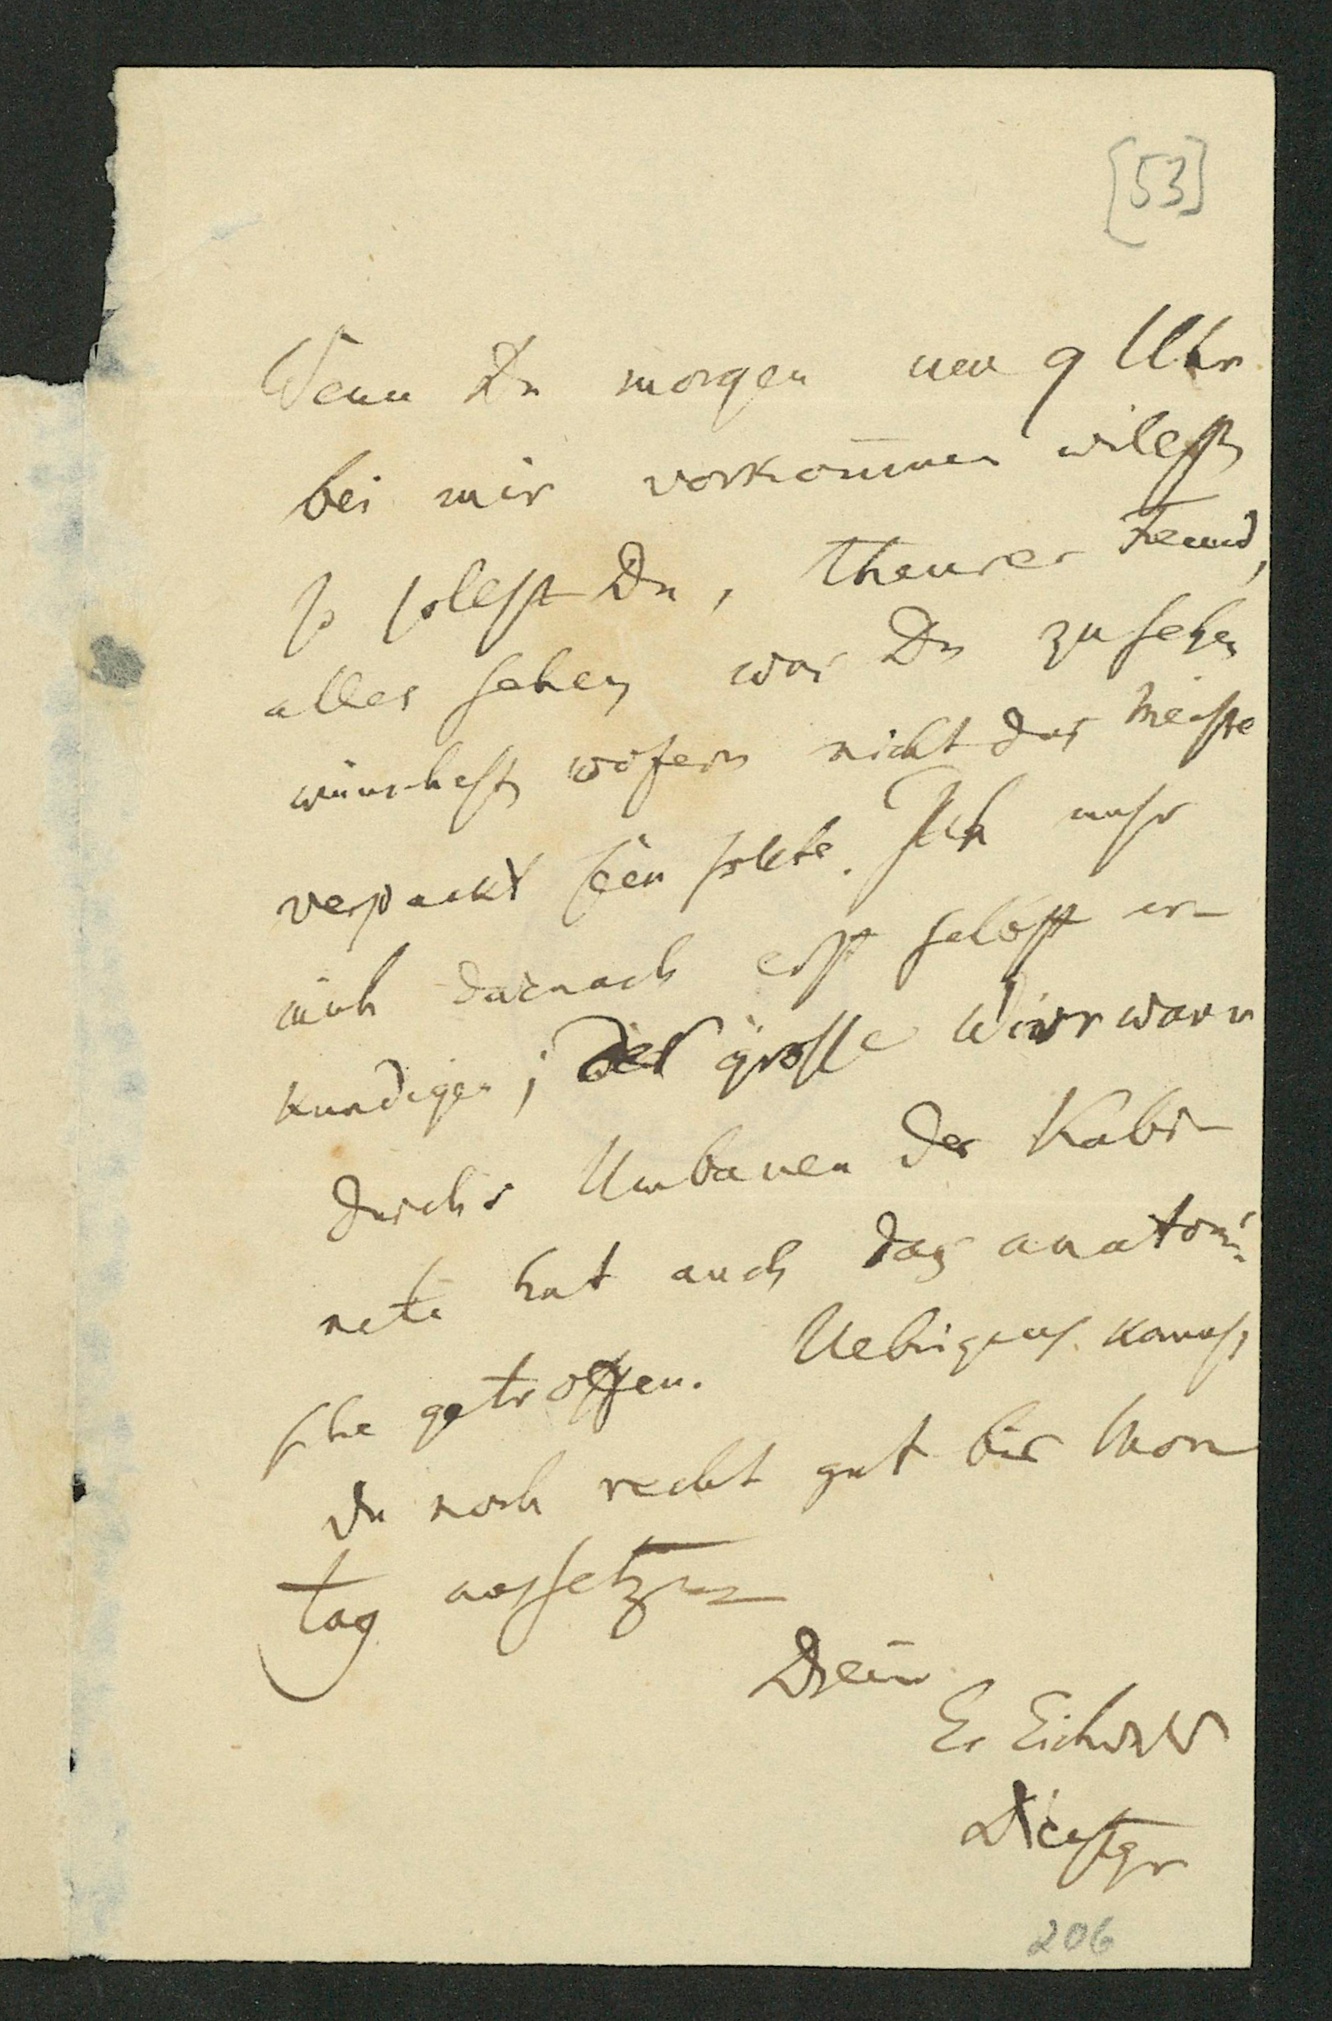 [53]
Wenn Du morgen um 9 Uhr
bei mir vorkom̄men willst
so sollst Du, theurer Freund,
alles sehen was Du zu sehen
wünschest, wofern nicht das Meiste
verpackt sein sollte. Ich muss
mich darnach erst selbst er-
kundigen; der grosse Wirrwarr
durchs Umbauen der Kabi-
nete hat auch das anatomi-
sche getroffen. Uebrigens kannst
Du noch recht gut bis Mon-
tag aussetzen
Dein
Er Eichwald
Dienstgr
206